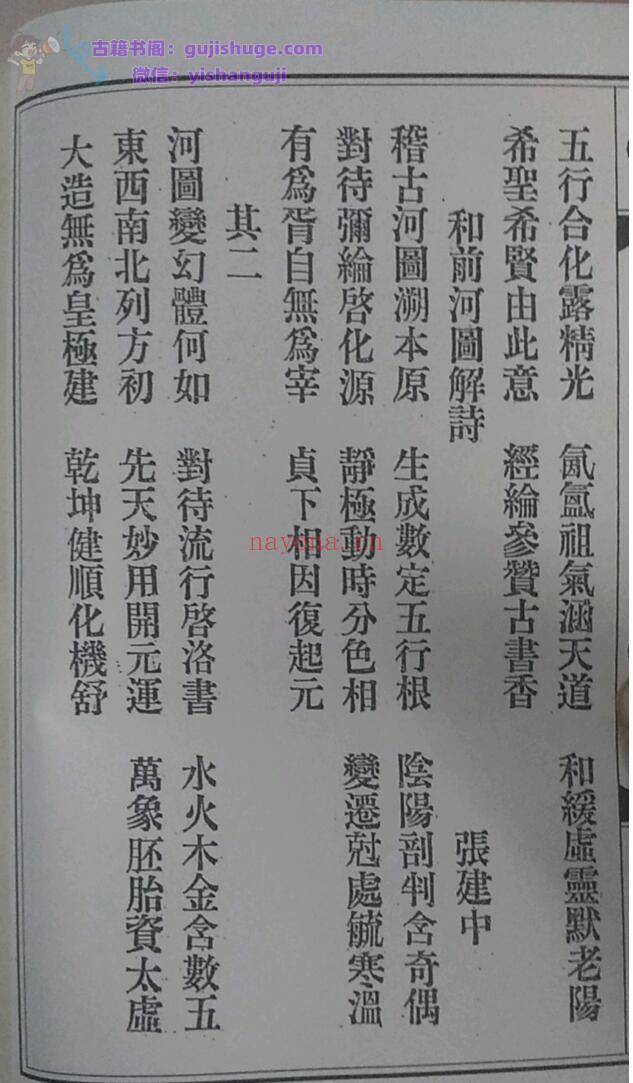 古籍书阁：gujishuge.com
微信：yishanguji
五行合化露精光　氤氳祖氣涵天道　和緩虛靈默老陽
希聖希賢由此意　經綸參贊古書香
和前河圖解詩　張建中
稽古河圖溯本原　生成數定五行根　陰陽剖判含奇偶
對待彌綸啓化源　靜極動時分色相　變遷尅處毓寒溫
有爲胥自無爲宰　貞下相因復起元
其二
河圖變幻體何如　對待流行啓洛書　水火木金含數五
東西南北列方初　先天妙用開元運　萬象胚胎資太虛
大造無爲皇極建　乾坤健順化機舒
nayona.cn